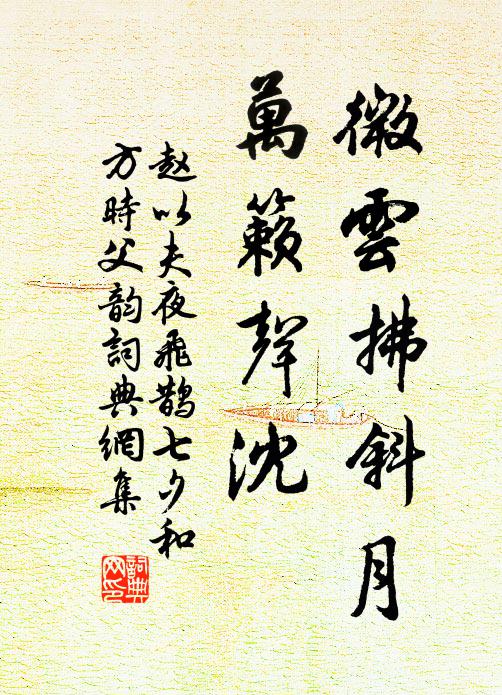 微雲拂斜月
萬籟聲沈
赵以夫夜飛鹊七夕和
方時父韵詞典網集
詞典
网印